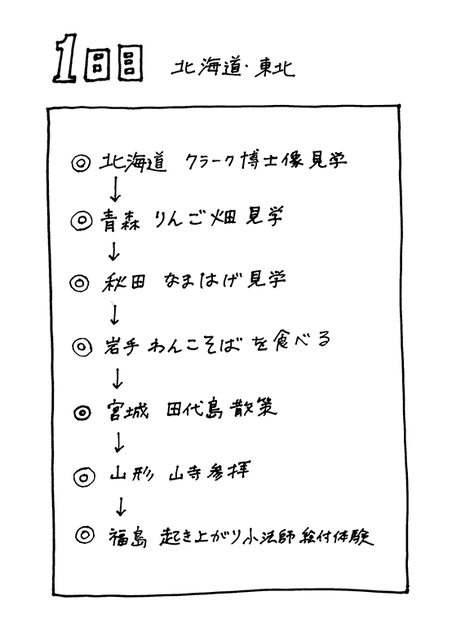 1日目 北海道・東北
◎ 北海道 クラーク博士像見学
↓
◎ 青森 りんご畑見学
↓
◎ 秋田 なまはげ見学
↓
◎ 岩手 わんこそばを食べる
↓
◎ 宮城 田代島散策
↓
◎ 山形 山寺参拝
↓
◎ 福島 起き上がり小法師絵付体験